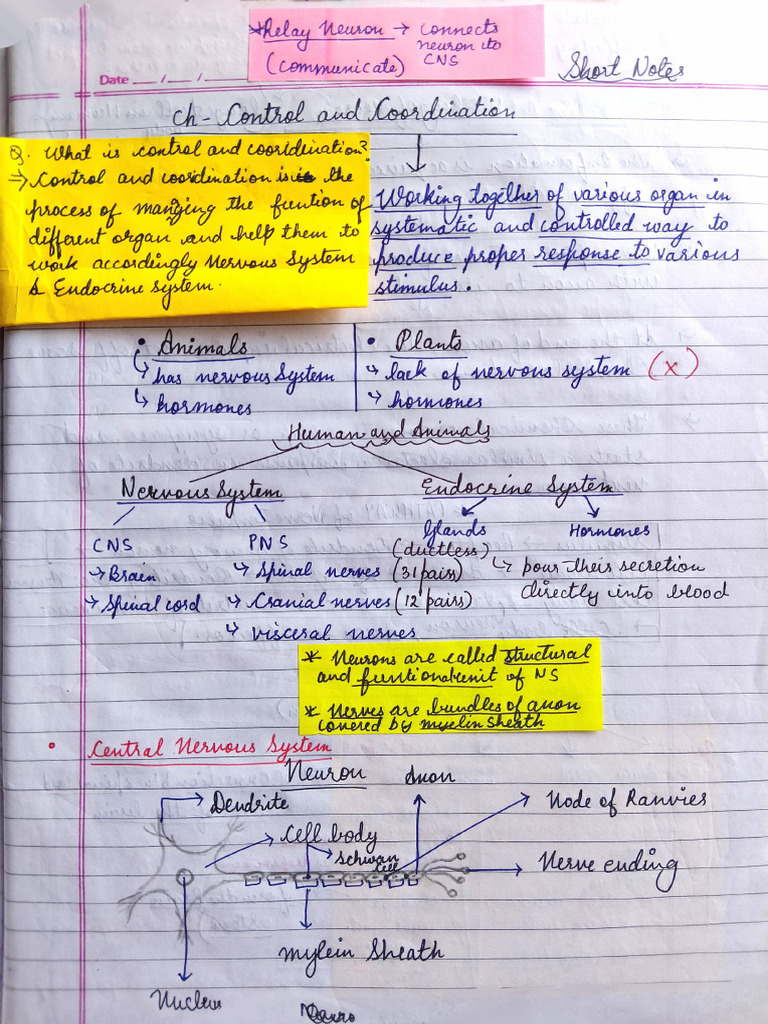 *Relay Neuron → connects
neuron to
(communicate) CNS
Short Notes
Date __/__/__
Ch- Control and Coordination
Q. What is control and cooridination?
⇒ Control and coordination is the
process of manging the funtion of
different organ and help them to
work accordingly Nervous System
& Endocrine system.
Working together of various organ in
systematic and controlled way to
produce proper response to various
stimulus.
• Animals
↳ has nervous System
↳ hormones
• Plants
↳ lack of nervous system (x)
↳ hormones
Human and Animals
Nervous System
Endocrine System
CNS
→ Brain
→ Spinal cord
PNS
↳ Spinal nerves (31 pairs)
→ Cranial nerves (12 pairs)
↳ visceral nerves
Glands
(ductless)
Hormones
↳ pour their secretion
directly into blood
* Neurons are called structural
and funtional unit of NS
* Nerves are bundles of axon
covered by myelin sheath
• Central Nervous System
Neuron
Axon
Dendrite
Node of Ranvies
Cell body
Schwan
cell
Nerve ending
mylein Sheath
Nucleus